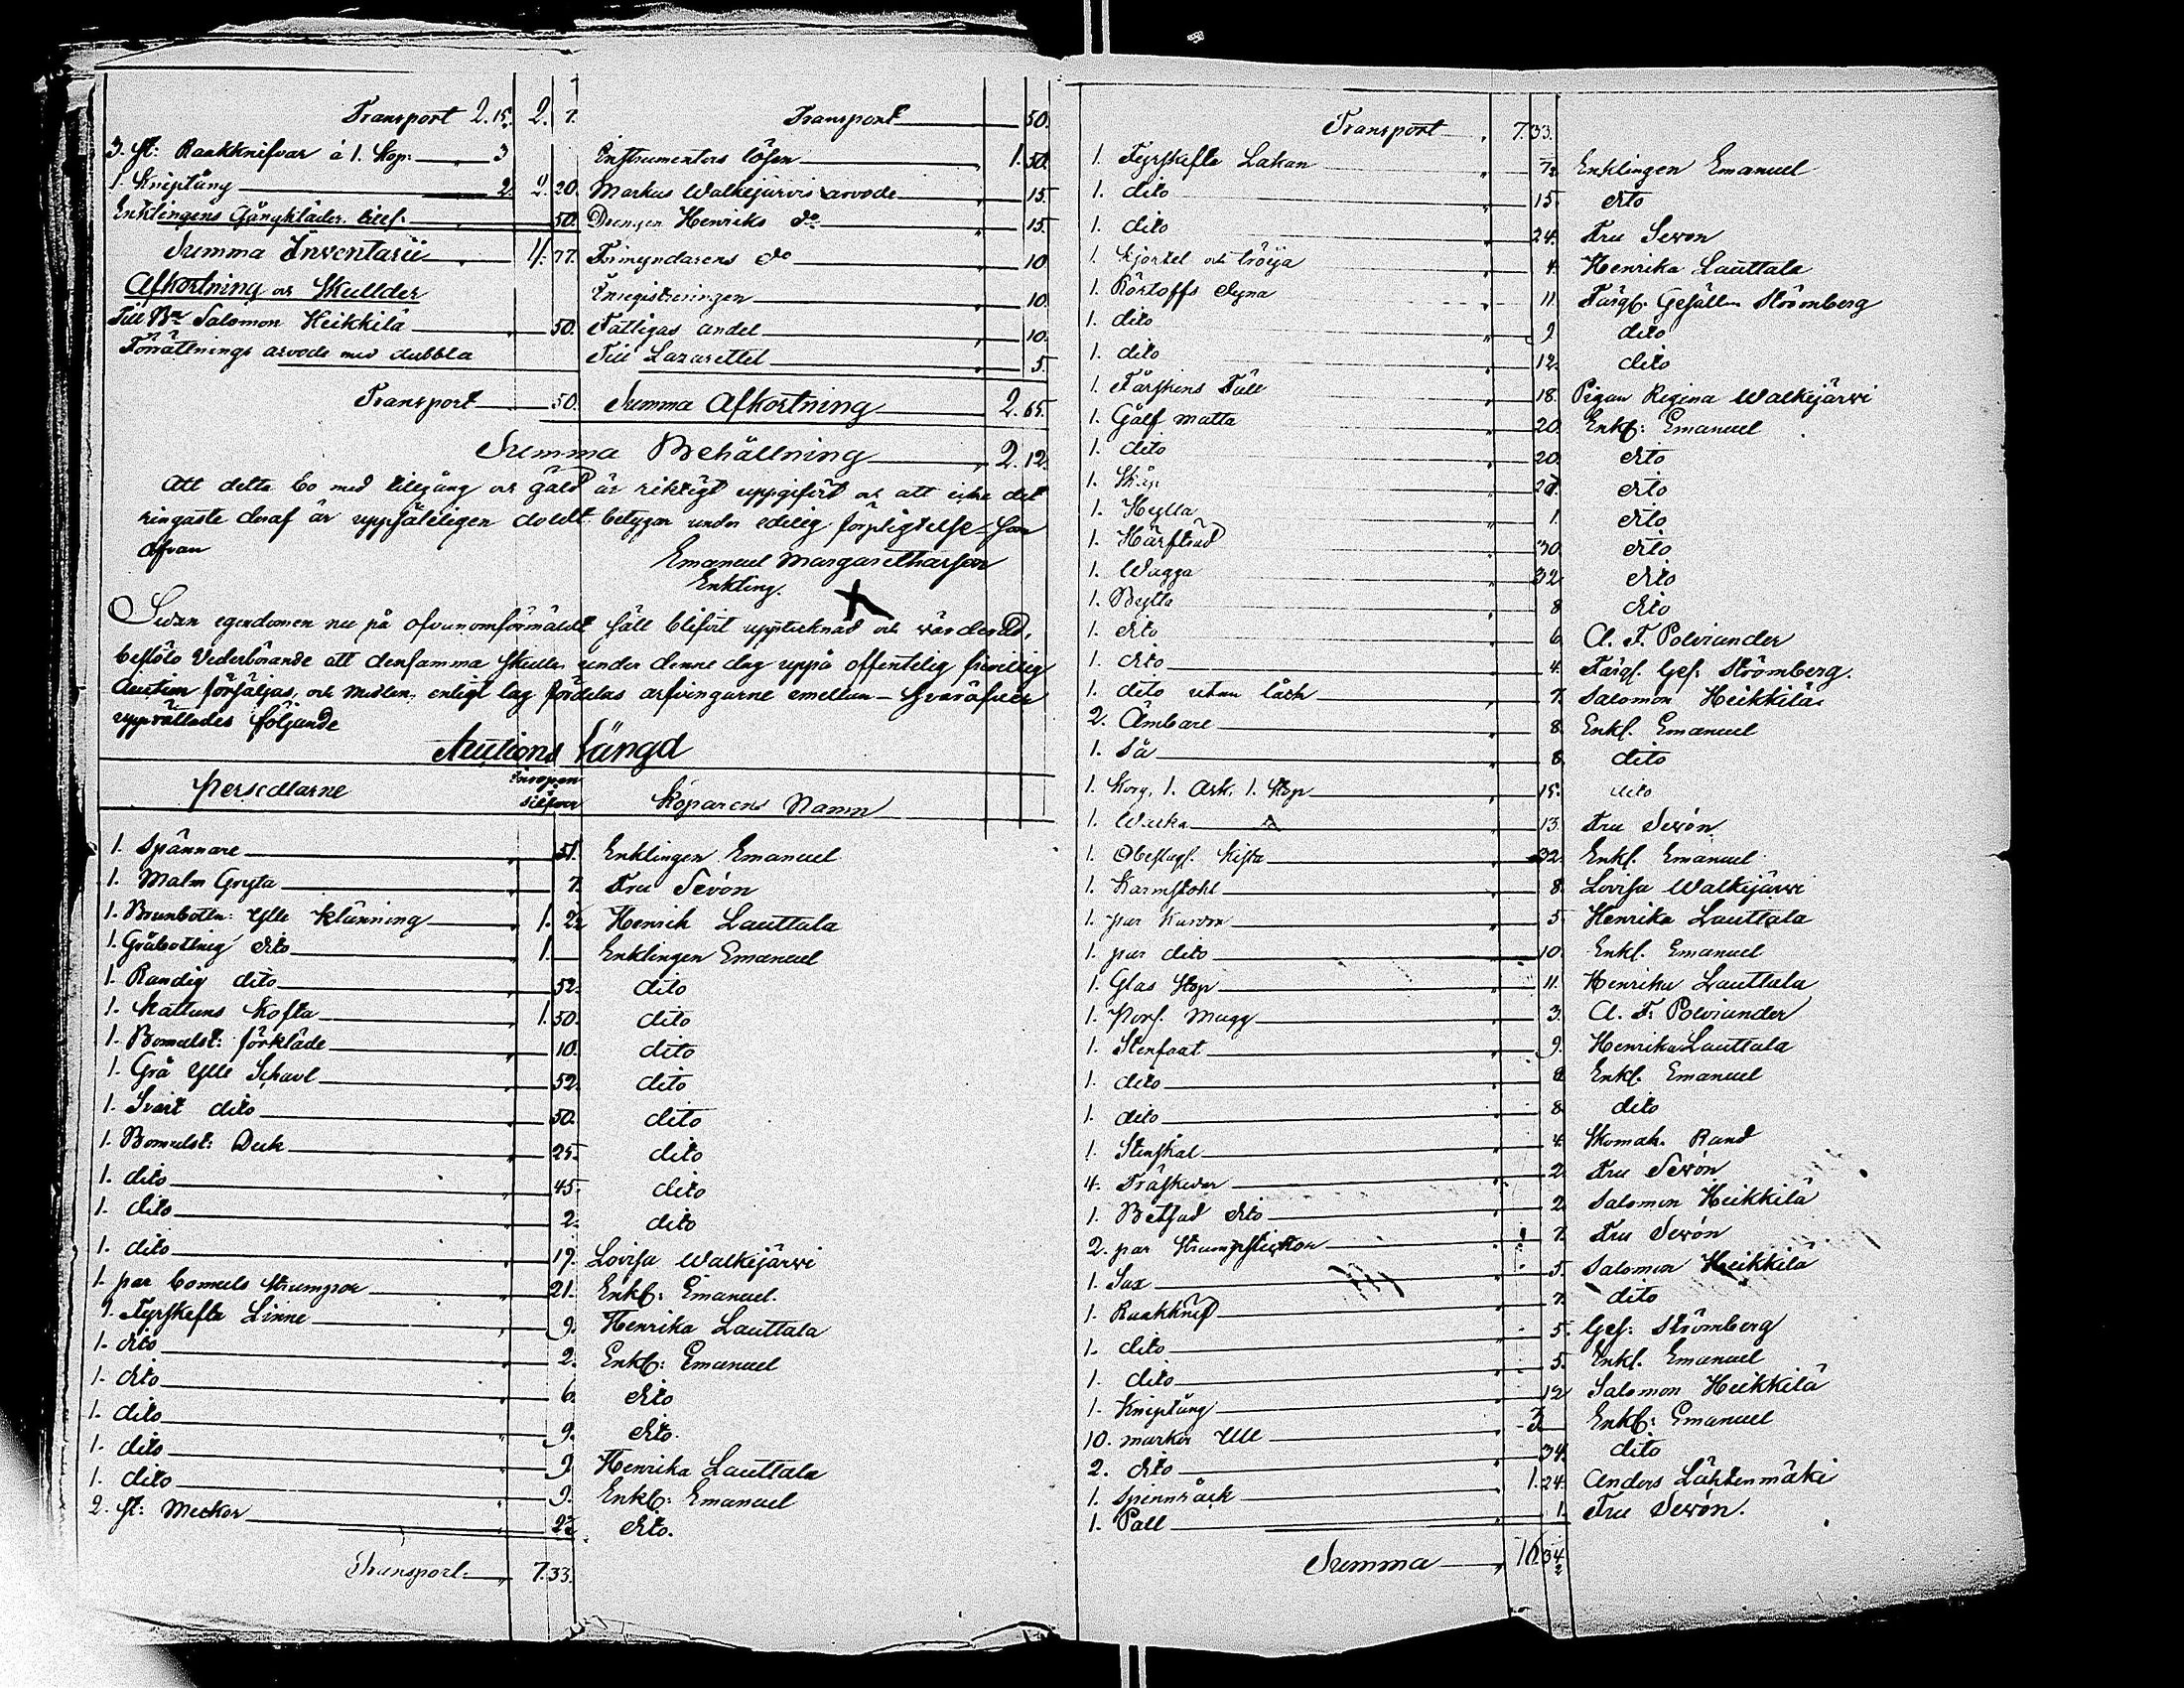 Transport 2.15. 2. 7.
3. st: Raakknifvar á 1. kop: 3
1. Kniptång 2. 2. 20.
Enklingens Gångkläder 50.
Summa Inventarii 4. 77.
Afkortning och Skullder
Till Salomon Heikkilä 50.
Förrättnings arvode med dubbla
Transport 50.
Transport 50.
Instrumentets lösen 1. 50.
Markus Walkejärvis arvode 15.
Drengen Henriks do 15.
Förmyndarens do 10
Inregistreringen 10.
Fattigas andel 10.
Till Lazarettet 5.
Summa Afkortning 2. 65.
Summa Behållning 2. 12.
Att detta bo med tillgång och gäld är riktigt uppgifvit och att icke det
ringaste deraf är uppsåteligen doldt betygar under edelig förpligtelse
Ofvan
Emanuel Margarethasson
Enkling.
Sedan egendomen nu på ofvanomförmäldt sätt blifvit upptecknad och värderad,
beslöto Vederbörande att densamma skulle under denne dag uppå offentelig frivillig
Auction försäljas, och medlen enligt lag fördelas arfvingarne emellan – hvaröfver
upprättades följande
Auctions Längd
Persedlarne silfver Köparens Namn
1. Spännare 51. Enklingen Emanuel
1. Malm Gryta 7. Fru Sevón
1. Brunbottn: Ylle Klänning 1. 2 Henrik Lauttala
1. Gråbottnig dito 1. Enklingen Emanuel
1. Randig dito 52. dito
1. Kattuns Kofta 1. 50. dito
1. Bomulst: förkläde 10. dito
1. Grå Ylle Schavl 52. dito
1. Svart dito 50. dito
1. Bomulst: Duk 25. dito
1. dito 45. dito
1. dito 2. dito
1. dito 19. Lovisa Walkejärvi
1. par bomuls Strumpor 21. Enkl: Emanuel.
1. Fyrskefta Linne 9. Henrika Lauttala
1. dito 2. Enkl: Emanuel
1. dito 6. dito
1. dito 9. dito.
1. dito 9. Henrika Lauttala
1. dito 9. Enkl: Emanuel
2. st: Meckor 2 dito.
Transport 7. 33.
Transport 7. 33.
1. Fyrskefta Lakan 7 Enklingen Emanuel
1. dito 15. dito
1. dito 24. Fru Sevon
1. Kjortel och tröija 4. Henrika Lauttala
1. Dyna 11. Färgf. Gesällen Strömberg
1. dito 9 dito
1. dito 12. dito
1. Fårskins Fäll 18. Pigan Regina Walkejärvi
1. Gålf matta 20. Enkl: Emanuel
1. dito 20. dito
1. Skåp 2 dito
1. Hylla 1. dito
1. Härfträd 30. dito
1. Wagga 32. dito
1. Bytta 8 dito
1. dito 6. A. F. Polviander
1. dito 4. Färgf. Ges: Strömberg.
1. dito utan låck 7. Salomon Heikkilä
2. Ämbare 8. Enkl. Emanuel
1. Så 8. dito
1. Korg, 1. Ask, 1. Stop 15. dito
1. Wacka 13. Fru Sevón.
1. Obeslagf. Kista 32. Enkl. Emanuel
1. Karmstohl 8. Lovisa Walkejärvi
1. par Kardor 5 Henrika Lauttala
1. par dito 10. Enkl. Emanuel
1. Glas Stop 11. Henrika Lauttala
1. Porsl. Mugg 3. A. F. Polviander
1. Stenfaat 9. Henrika Lauttala
1. dito 8 Enkl. Emanuel
1. dito 8. dito
1. Stenskål 4. Skomak. Rand
4. Träskedar 2. Fru Sevón
1. Betsad dito 2 Salomon Heikkilä
2. par Strumpstickor 7. Fru Sevón
1. Sax 5. Salomon Heikkilä
1. Raakknif 7. dito
1. dito 5. Ges: Strömberg
1. dito 5. Enkl. Emanuel
1. Kniptång 12 Salomon Heikkilä
10. marker Ull 3 Enkl: Emanuel
2. dito 34. dito
1. Spinnråck 1. 24. Anders Lähteenmäki
1. Pall 1. Fru Sevón.
Summa 16. 34